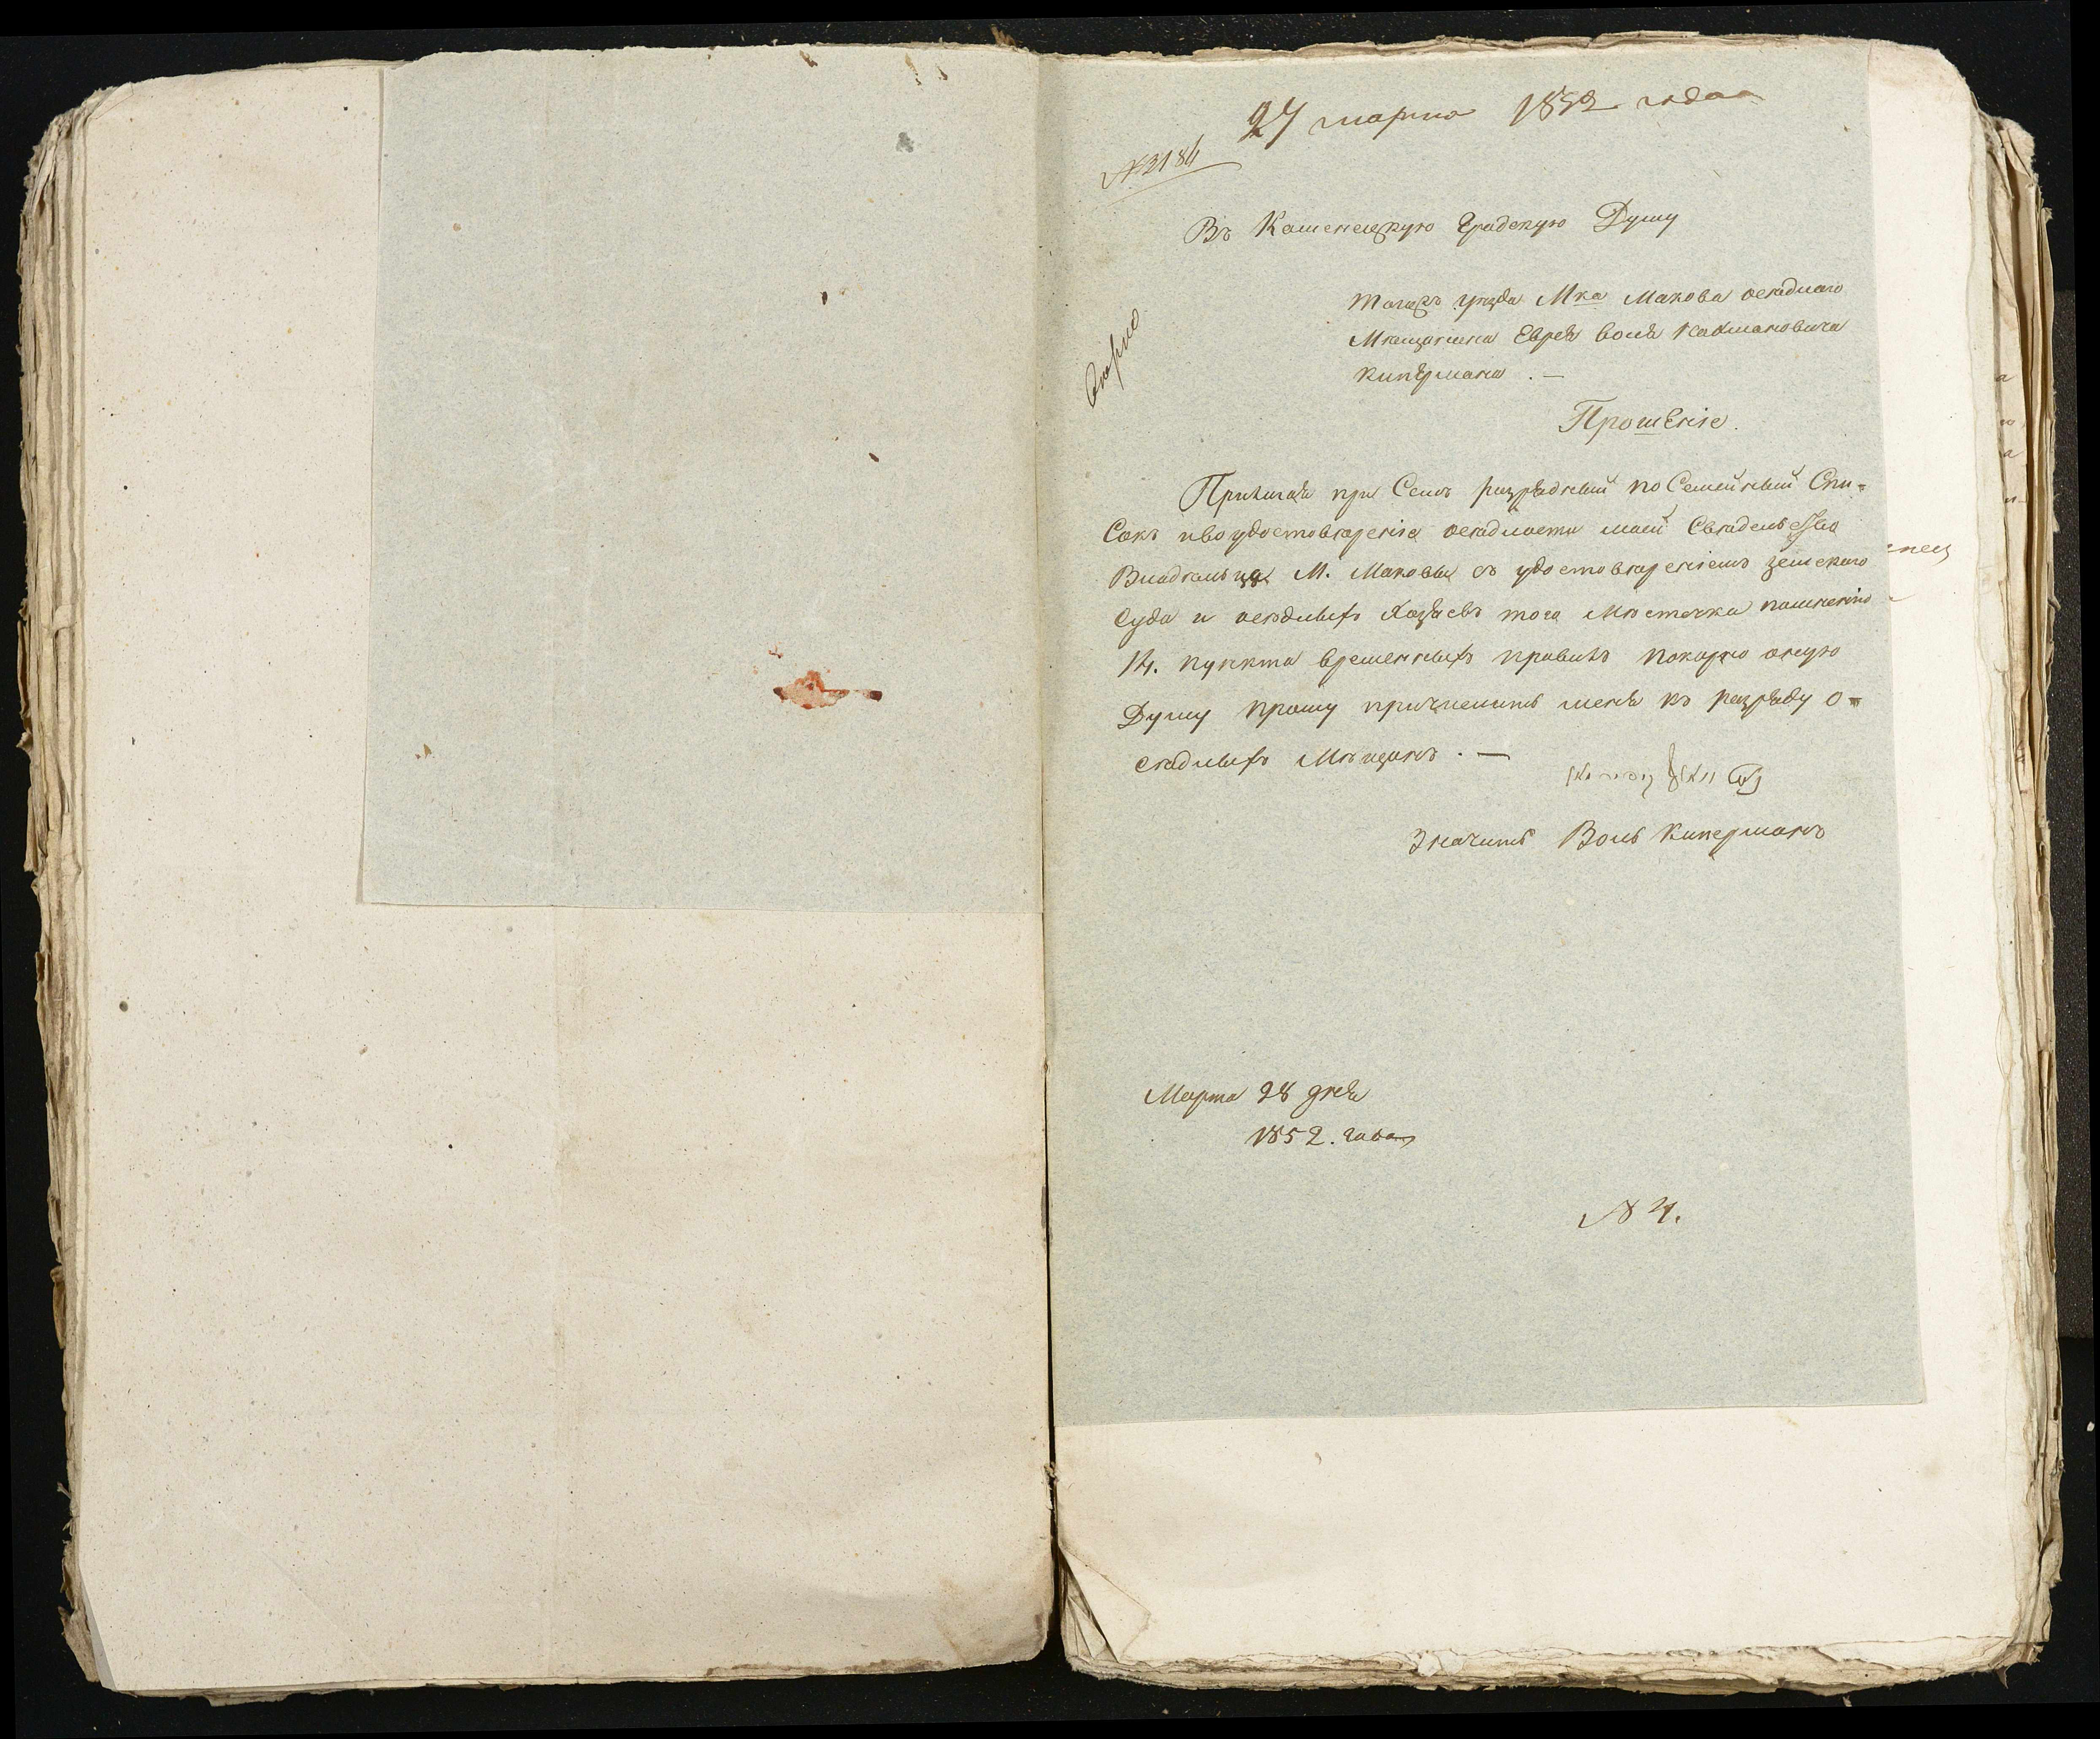 27 марта 1852 года
№ 3184
Въ Каменецкую Градскую Думу
Тогожъ уѣзда Мка Макова осѣдлаго
Мѣщанина Еврея Воля Калмановича
Кипермана . —
Прошеніе.
Прилагая при Семъ разрядный по Семейный Спи=
Сокъ иво удостовѣреніе осѣдлости моей Свѣдельство
Владѣльца М. Маковы съ удостовѣреніемъ земскаго
Суда и осѣдлыхъ Хозяевъ того Мѣстечка
14. пункта временныхъ правилъ покорно оную
Думу прошу причислить меня къ разряду о=
сѣдлыхъ Мѣщанъ . —
Значитъ Воль Киперманъ
Марта 28 дня
1852. года
№ 4.